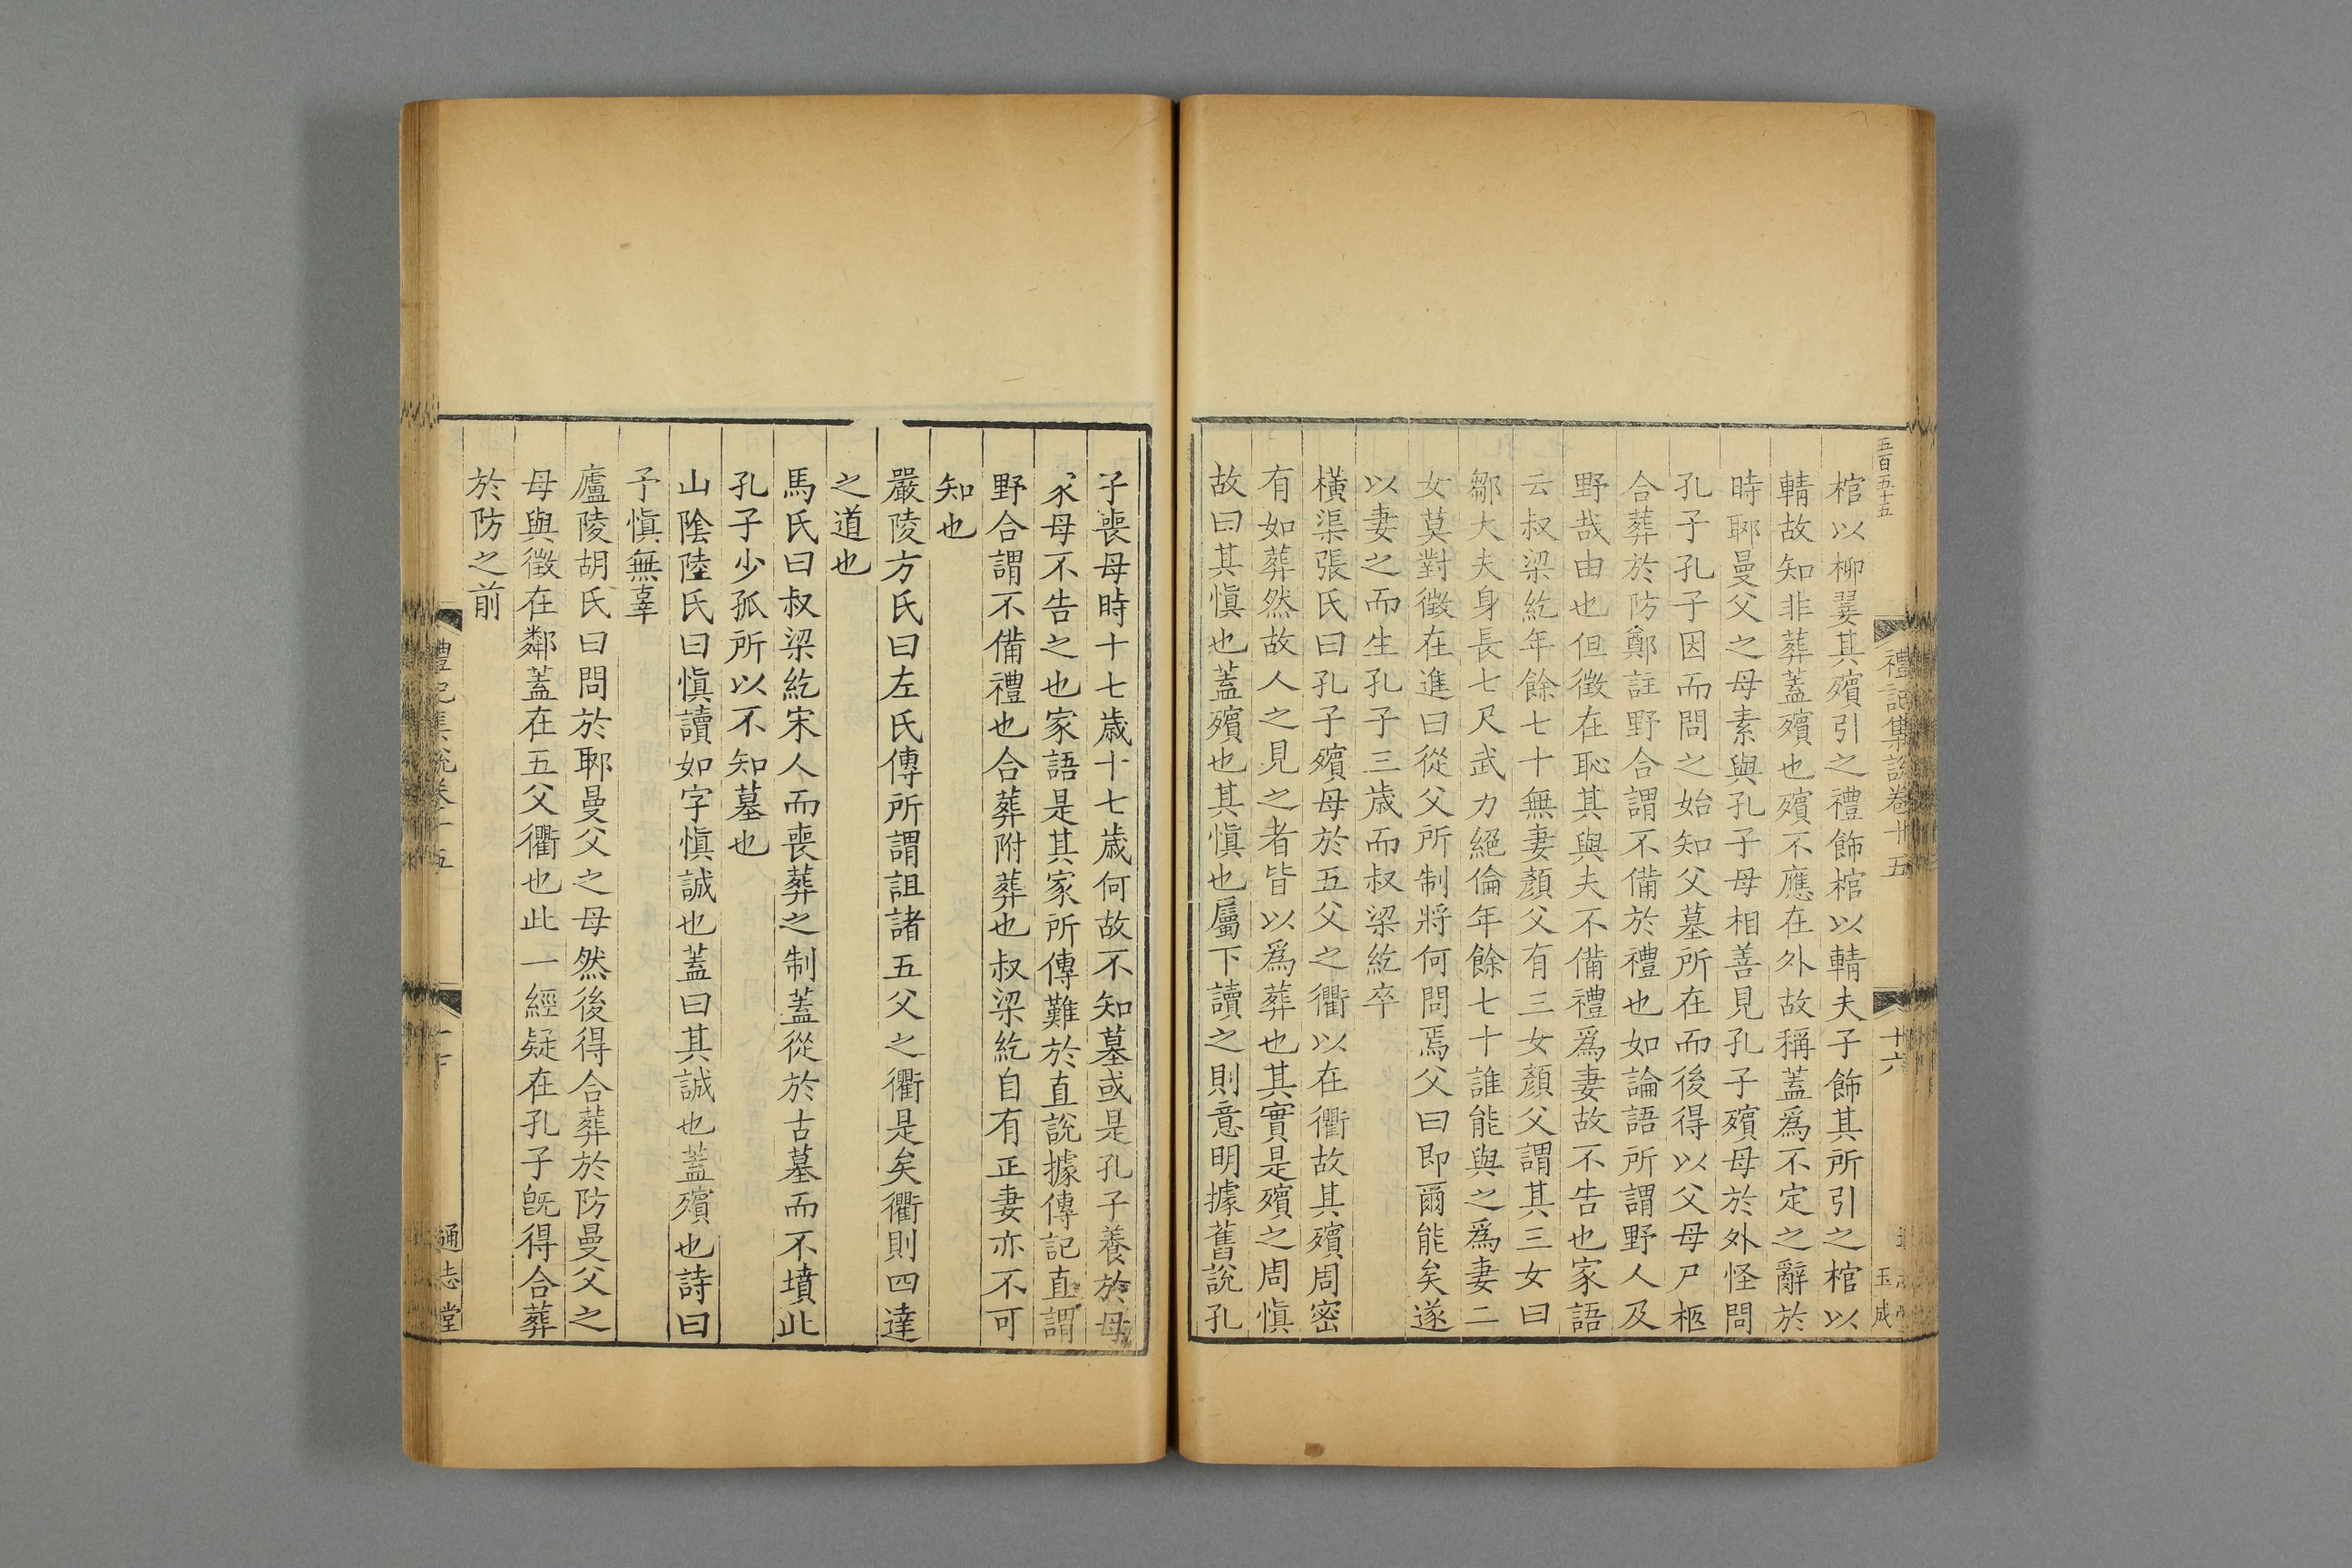 五百五十五
禮記集說卷十五
十六
玉成
棺以柳翣其殯引之禮飾棺以輤夫子飾其所引之棺以
輤故知非葬蓋殯也殯不應在外故稱蓋爲不定之辭於
時郰曼父之母素與孔子母相善見孔子殯母於外怪問
孔子孔子因而問之始知父墓所在而後得以父母尸柩
合葬於防鄭註野合謂不備於禮也如論語所謂野人及
野哉由也但徵在恥其與夫不備禮爲妻故不告也家語
云叔梁紇年餘七十無妻顏父有三女顏父謂其三女曰
鄒大夫身長七尺武力絕倫年餘七十誰能與之爲妻二
女莫對徵在進曰從父所制將何問焉父曰即爾能矣遂
以妻之而生孔子三歲而叔梁紇卒
橫渠張氏曰孔子殯母於五父之衢以在衢故其殯周密
有如葬然故人之見之者皆以爲葬也其實是殯之周慎
故曰其慎也蓋殯也其慎也屬下讀之則意明據舊說孔
子喪母時十七歲十七歲何故不知墓或是孔子養於母
家母不告之也家語是其家所傳難於直說據傳記直謂
野合謂不備禮也合葬附葬也叔梁紇自有正妻亦不可
知也
嚴陵方氏曰左氏傳所謂詛諸五父之衢是矣衢則四達
之道也
馬氏曰叔梁紇宋人而喪葬之制蓋從於古墓而不墳此
孔子少孤所以不知墓也
山陰陸氏曰慎讀如字慎誠也蓋曰其誠也蓋殯也詩曰
予慎無辜
廬陵胡氏曰問於郰曼父之母然後得合葬於防曼父之
母與徵在鄰蓋在五父衢也此一經疑在孔子旣得合葬
於防之前
禮記集說卷十五
通志堂